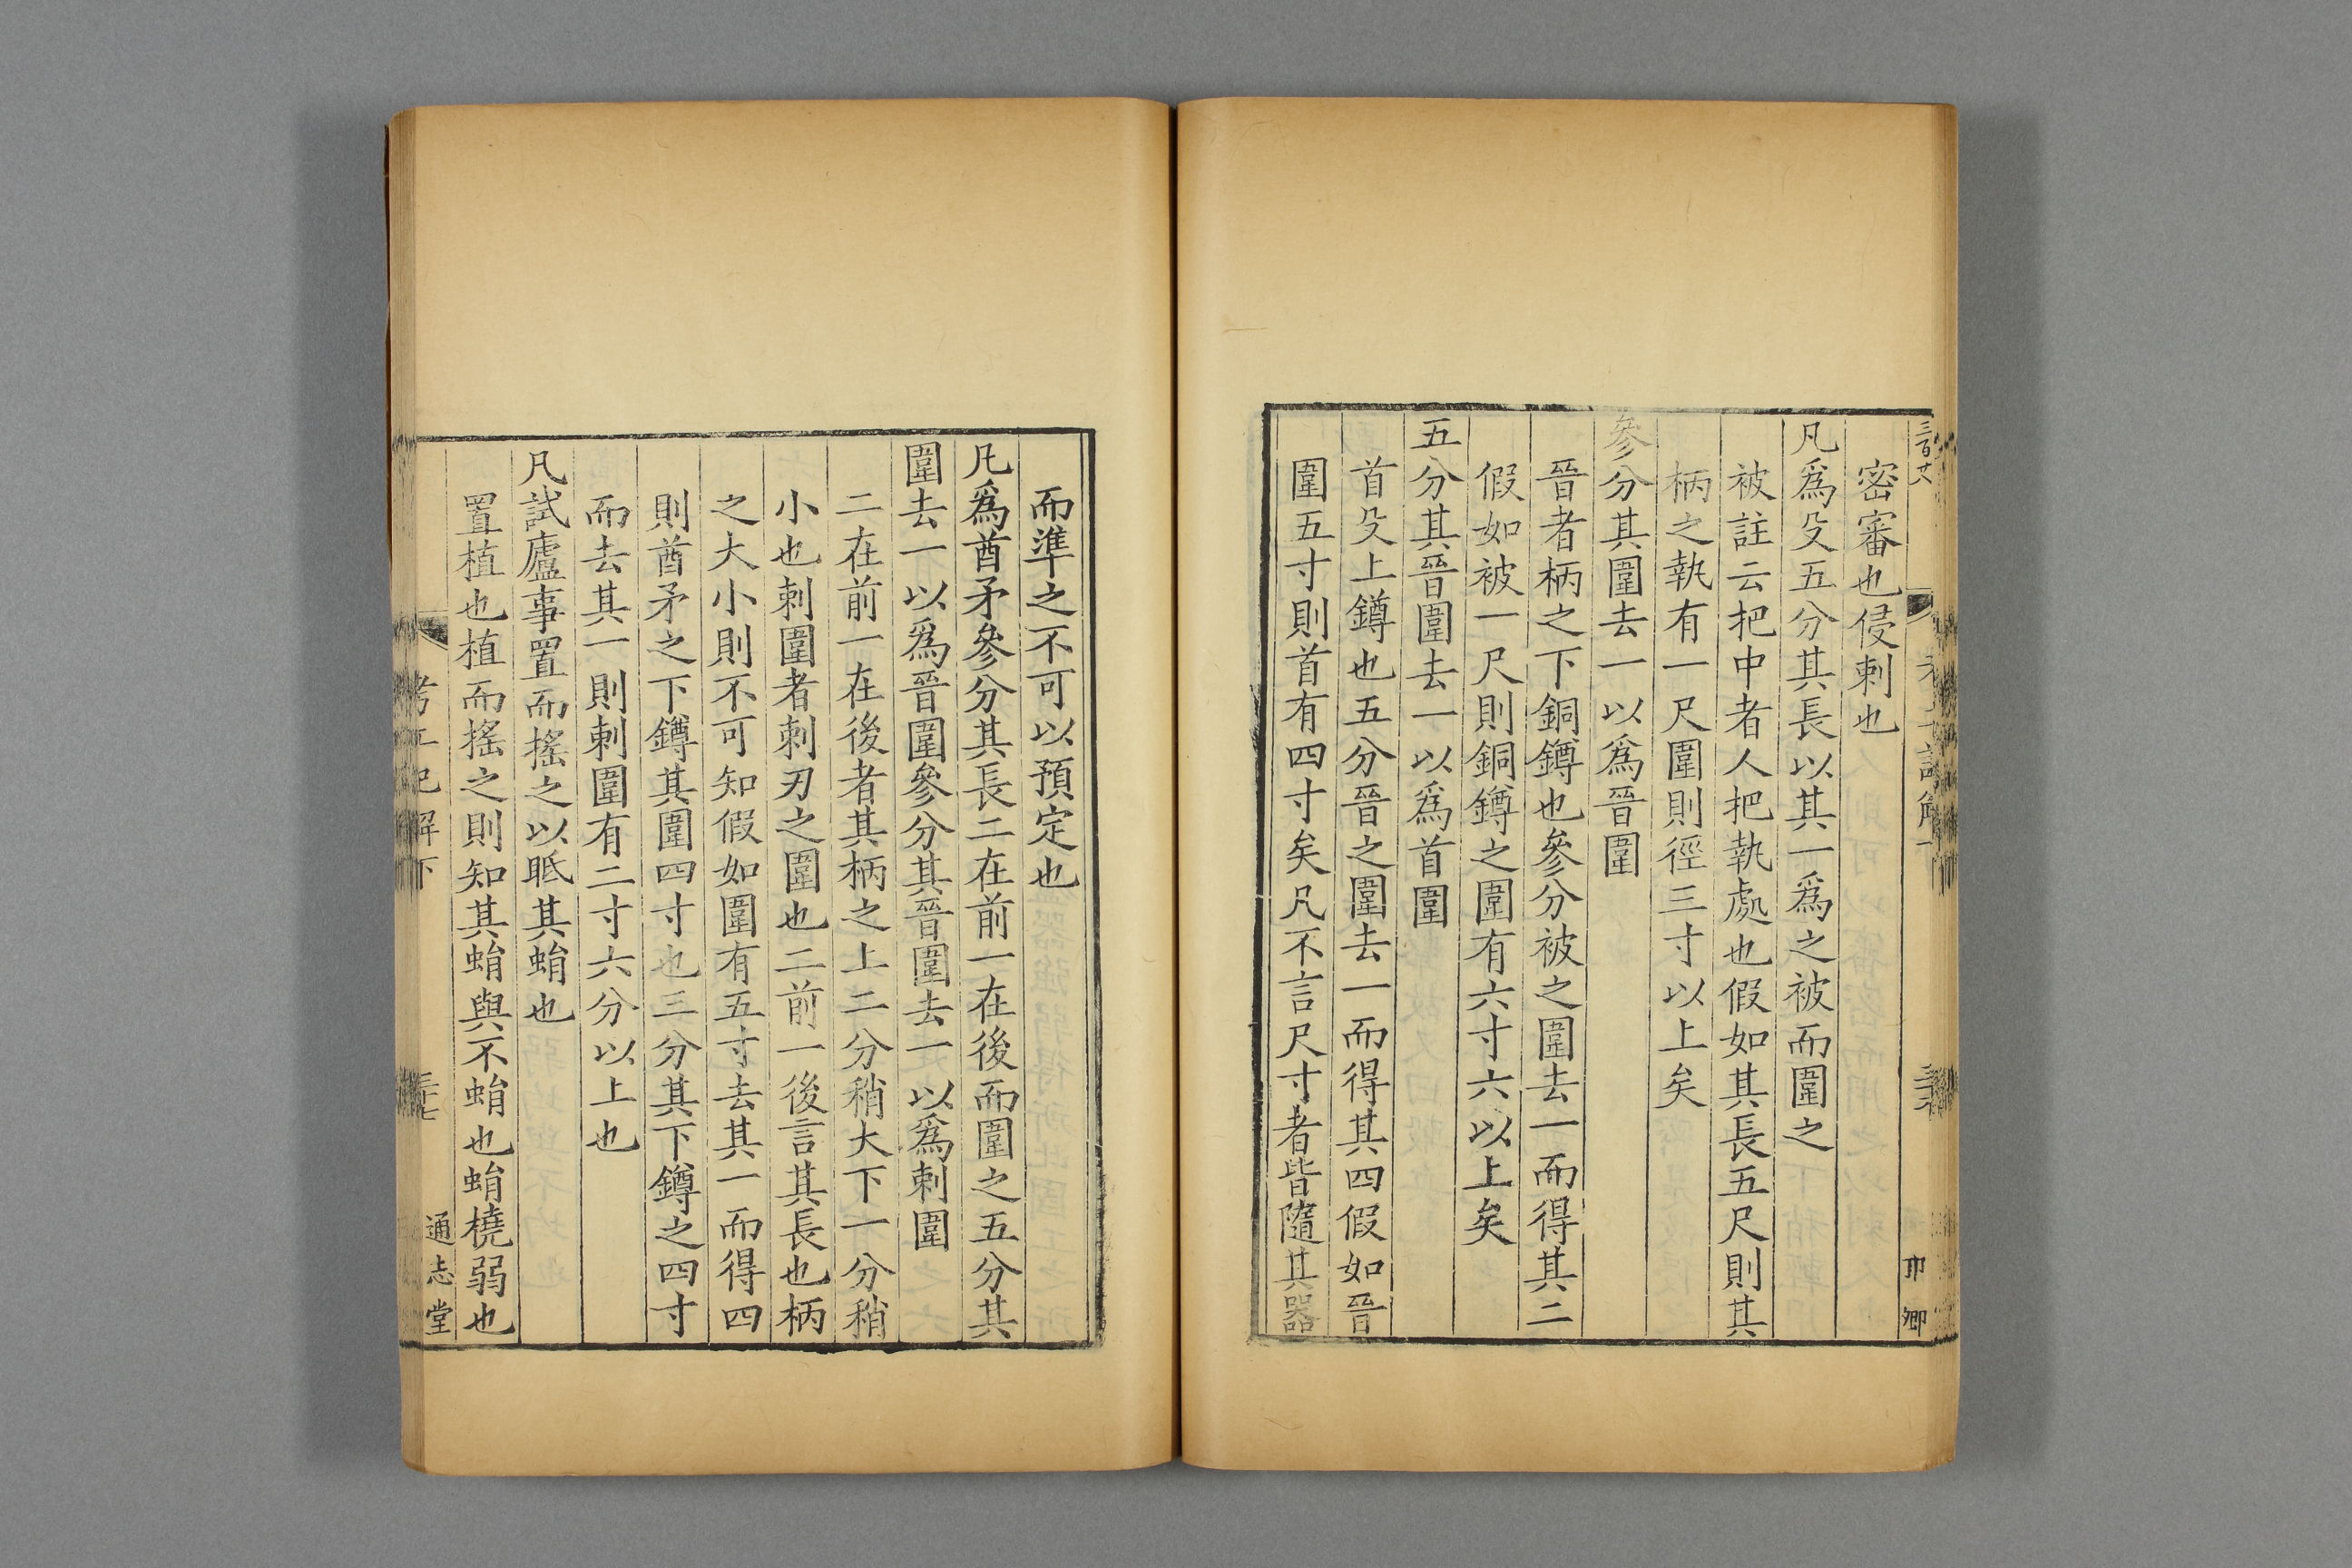 三百廿六
密審也侵刺也
凡爲殳五分其長以其一爲之被而圍之
被註云把中者人把執處也假如其長五尺則其
柄之執有一尺圍則徑三寸以上矣
參分其圍去一以爲晉圍
晉者柄之下銅鐏也參分被之圍去一而得其二
假如被一尺則銅鐏之圍有六寸六以上矣
五分其晉圍去一以爲首圍
首殳上鐏也五分晉之圍去一而得其四假如晉
圍五寸則首有四寸矣凡不言尺寸者皆隨其器
而準之不可以預定也
凡爲酋矛參分其長二在前一在後而圍之五分其
圍去一以爲晉圍參分其晉圍去一以爲刺圍
二在前一在後者其柄之上二分稍大下一分稍
小也刺圍者刺刃之圍也二前一後言其長也柄
之大小則不可知假如圍有五寸去其一而得四
則酋矛之下鐏其圍四寸也三分其下鐏之四寸
而去其一則刺圍有二寸六分以上也
凡試廬事置而搖之以眡其蜎也
置植也植而搖之則知其蜎與不蜎也蜎橈弱也
考工記解下
三十七
通志堂